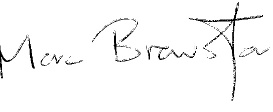 Marc Brewster